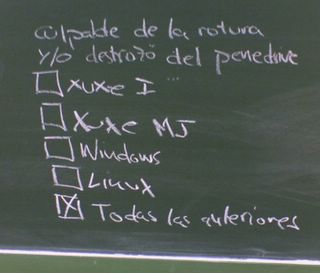 culpable de la rotura
y/o destrozo del penedrive
xuxe I ...
Xuxe MJ
Windows
Linux
Todas las anteriores